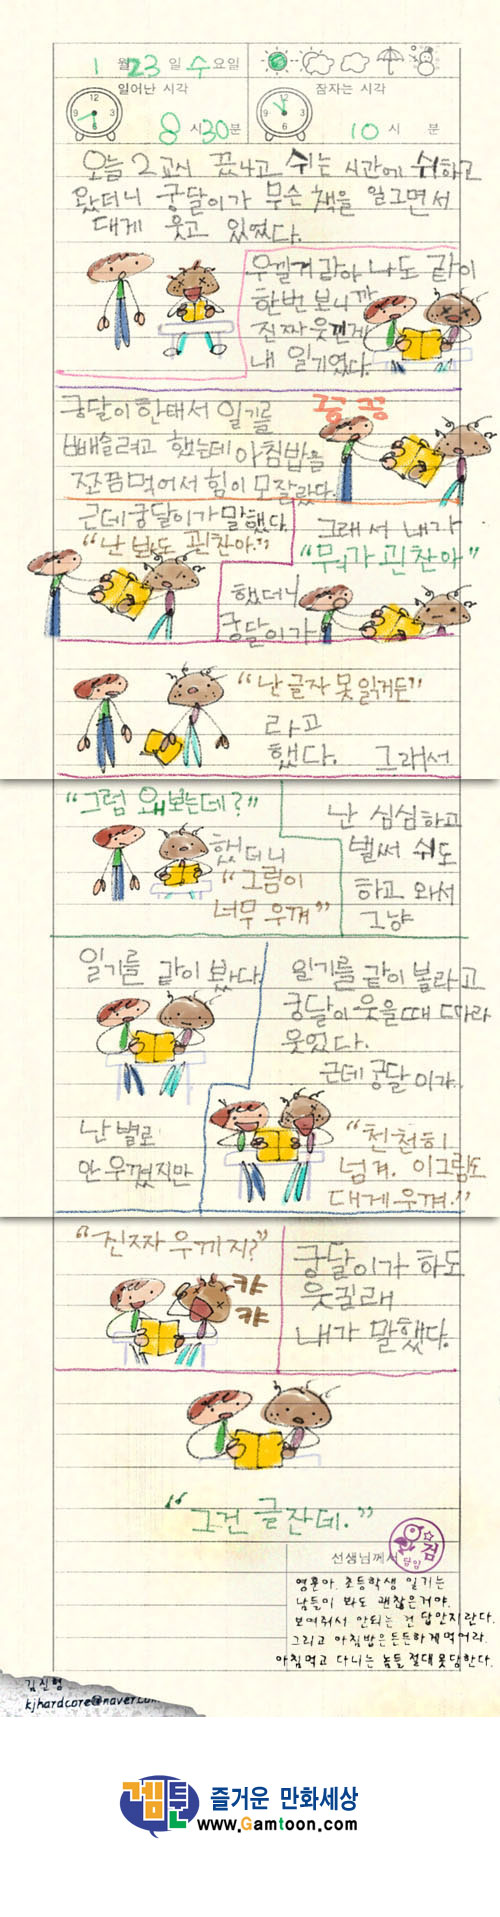 1 월 23 일 수 요일
일어난 시각
잠자는 시각
8 시 30 분
10 시 분
오늘 2교시 끝나고 쉬는 시간에 쉬하고
왔더니 궁달이가 무슨 책을 일그면서
대게 웃고 있었다.
우낄거 같아 나도 같이
한번 보니까
진짜 웃낀게
내 일기였다.
궁달이한태서 일기를
빼슬려고 했는데 아침밥을
쪼끔먹어서 힘이 모잘랐다.
끙 끙
근데 궁달이가 말했다.
"난 봐도 괸찬아."
그래서 내가
"뭐가 괸찬아"
했더니
궁달이가
"난 글자 못 일거든"
라고
했다. 그래서
"그럼 왜 보는데?"
했더니
"그림이
너무 우껴"
난 심심하고
벌써 쉬도
하고 와서
그냥
일기를 같이 봤다.
난 별로
안 우꼈지만
일기를 같이 볼라고
궁달이 웃을때 따라
웃었다.
근데 궁달이가.
"천천히
넘겨. 이그림도
대게 우껴."
"진짜 우끼지?"
캬
캬
궁달이가 하도
웃길래
내가 말했다.
"그건 글잔데."
선생님께서
검
담임
영훈아. 초등학생 일기는
남들이 봐도 괜찮은거야.
보여줘서 안되는 건 답안지란다.
그리고 아침밥은 든든하게 먹어라.
아침먹고 다니는 놈들 절대 못당한다.
김진형
kjhardcore@naver.com
겜툰 즐거운 만화세상
www.Gamtoon.com